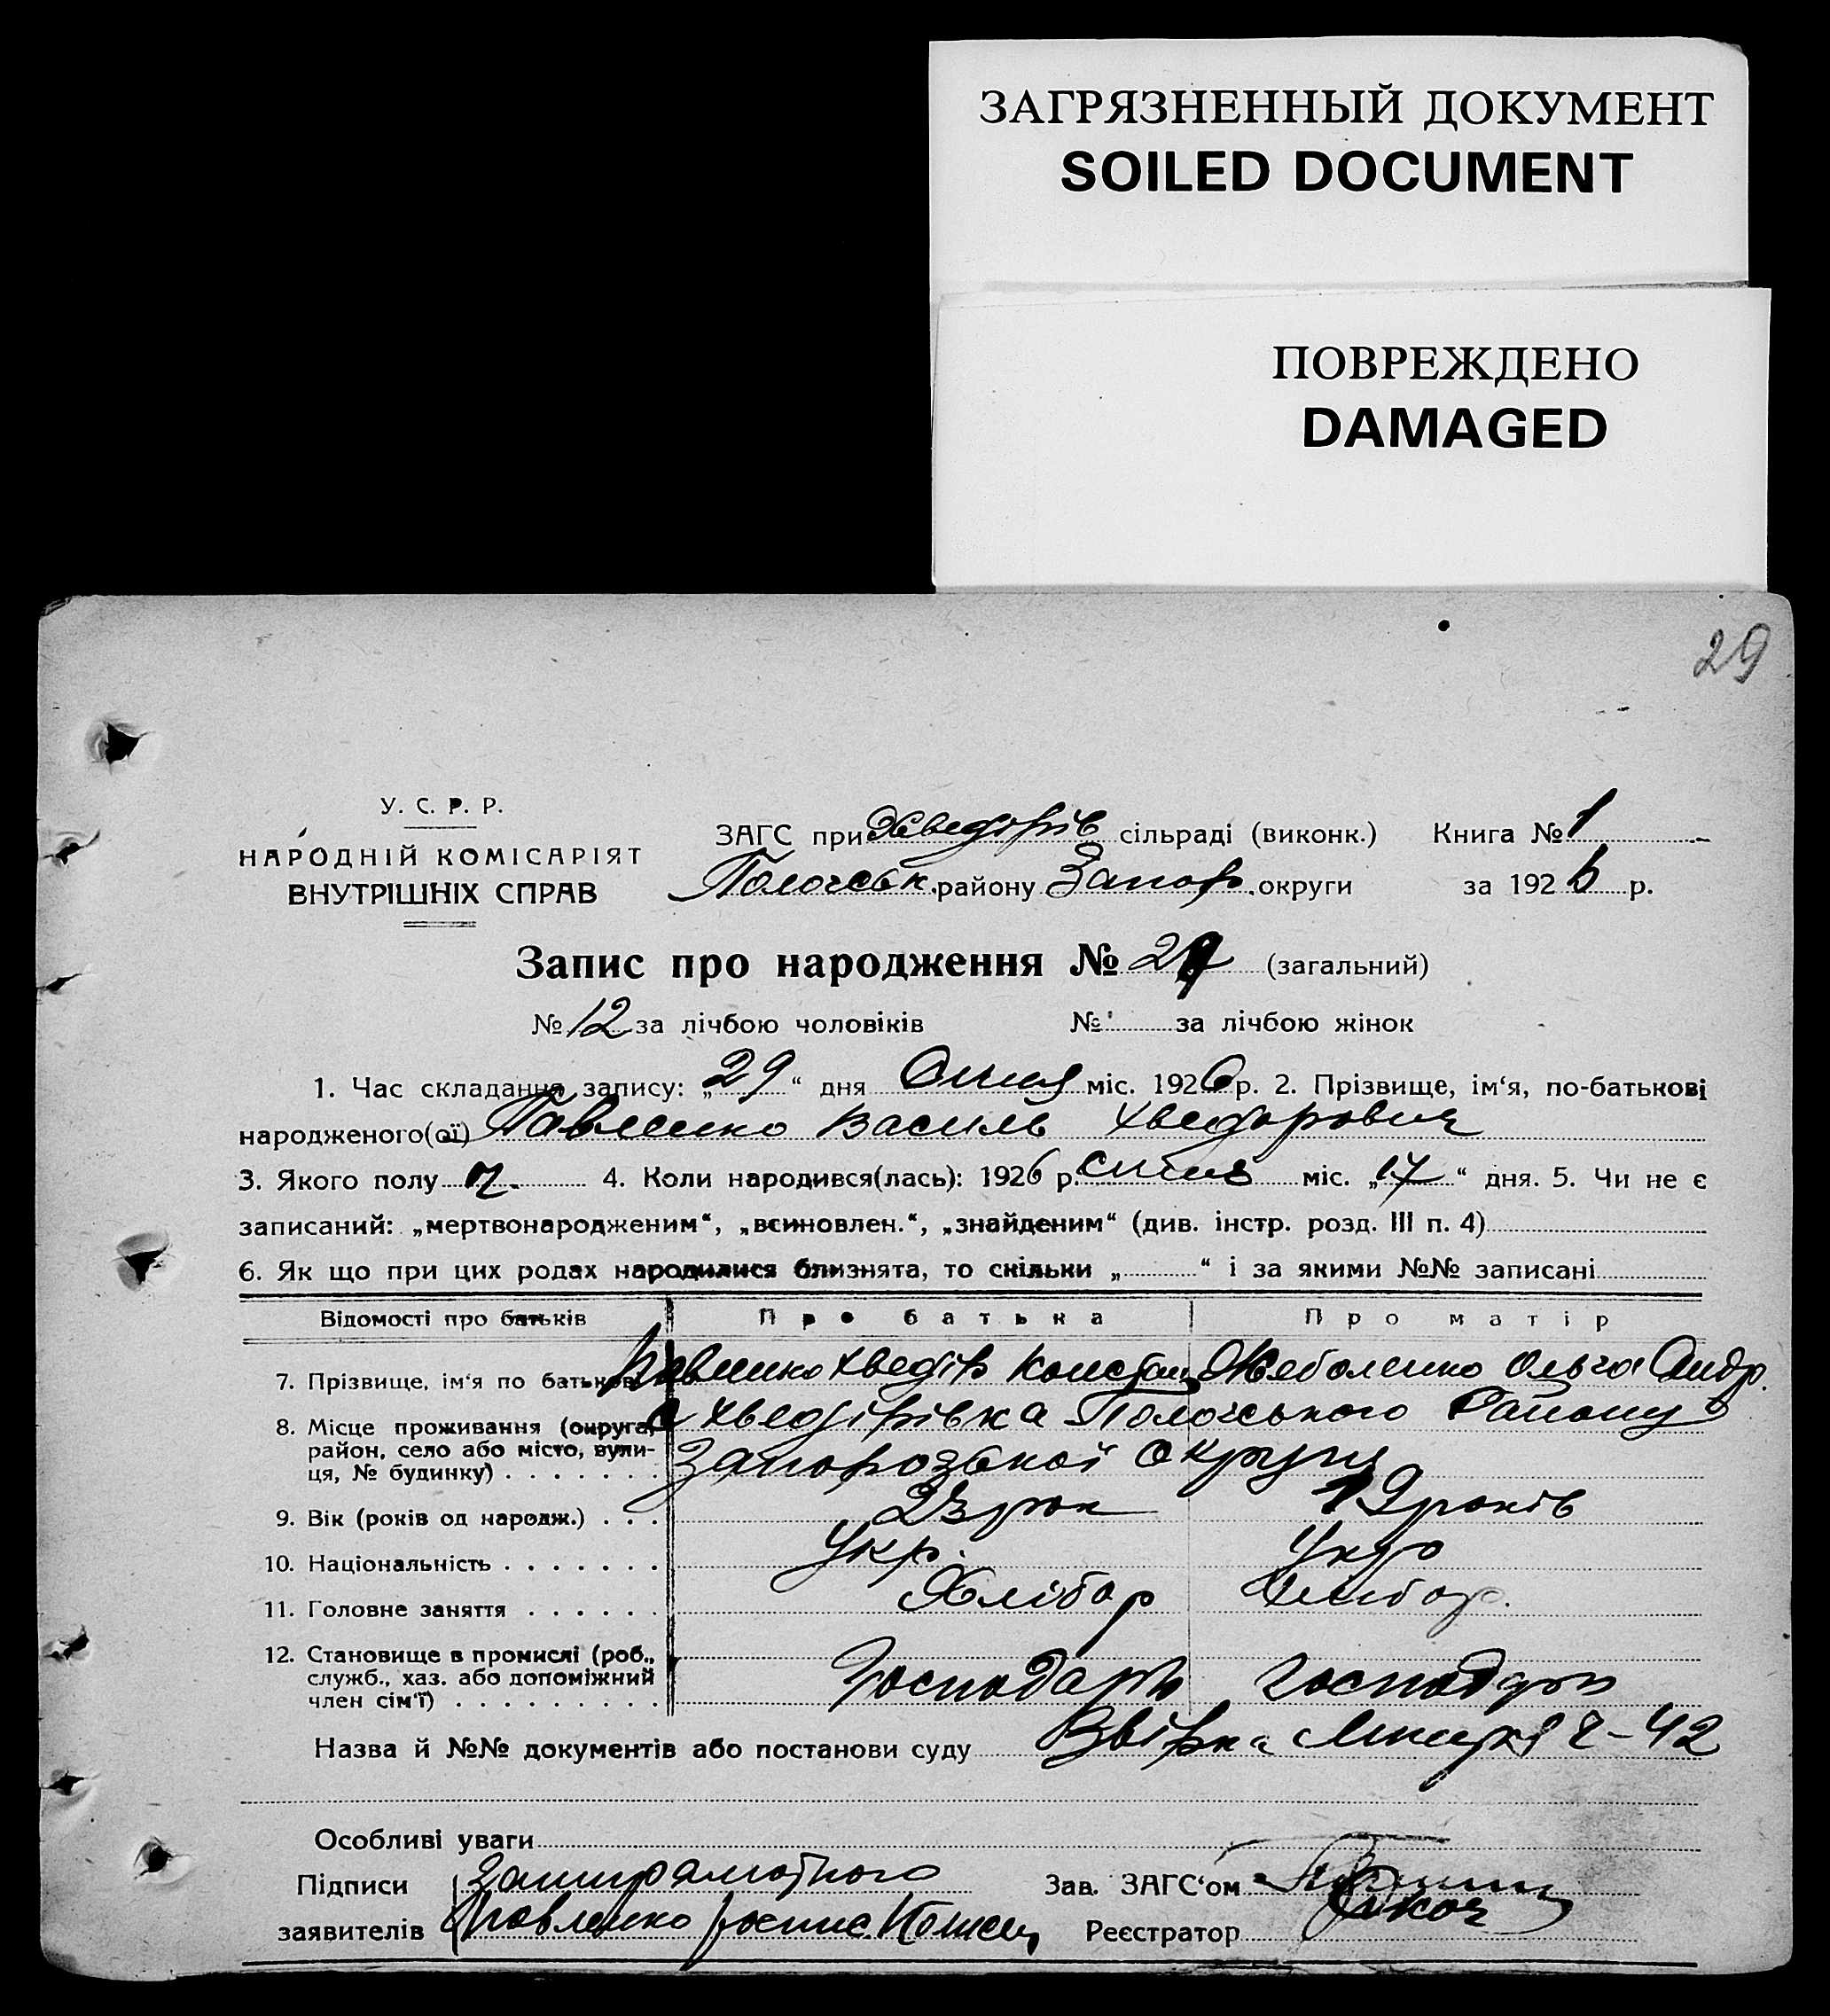 ЗАГРЯЗНЕННЫЙ ДОКУМЕНТ
SOILED DOCUMENT
ПОВРЕЖДЕНО
DAMAGED
29
У. С. Р. Р.
НАРОДНІЙ КОМІСАРІЯТ
ВНУТРІШНІХ СПРАВ
ЗАГС при Хведорів сільраді (виконк.) Книга № 1
Пологськ. району Запор. округи за 1926 р.
Запис про народження № 29 (загальний)
№ 12 за лічбою чоловіків № за лічбою жінок
1. Час складання запису: „29“ дня Січня міс. 1926 р. 2. Прізвище, ім‘я, по-батькові
народженого(ої) Павленко Василь Хведорович
3. Якого полу ч. 4. Коли народився(лась): 1926 р. січня міс. „17“ дня. 5. Чи не є
записаний: „мертвонародженим“, „всиновлен.“, „знайденим“ (див. інстр. розд. III п. 4)
6. Як що при цих родах народилися близнята, то скільки „ “ і за якими №№ записані
Відомості про батьків Про батька Про матір
7. Прізвище, ім‘я по батькові Павленко Хведір Конст Жеболенко Ольга Андр.
8. Місце проживання (округа, район, село або місто, вулиця, № будинку) с Хведірівка Пологського Району
Запорозької Округи
9. Вік (років од народж.) 23 рок 19 років
10. Національність Укр. Укр
11. Головне заняття Хлібор Хлібор.
12. Становище в промислі (роб., служб., хаз. або допоміжний член сім‘ї) Господарь господарь
Назва й №№ документів або постанови суду 2-42
Особливі уваги
Підписи
заявителів Павленко роспис.
Зав. ЗАГС‘ом
Реєстратор